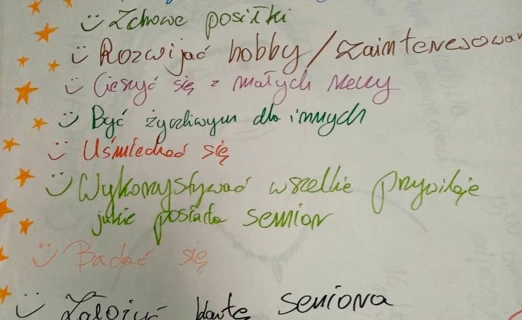 Zdrowe posiłki
Rozwijać hobby/zainteresowan
Cieszyć się z małych rzeczy
Być życzliwym dla innych
Uśmiechać się
Wykorzystywać wszelkie przywileje
jakie posiada senior
Badać się
Założyć kartę seniora